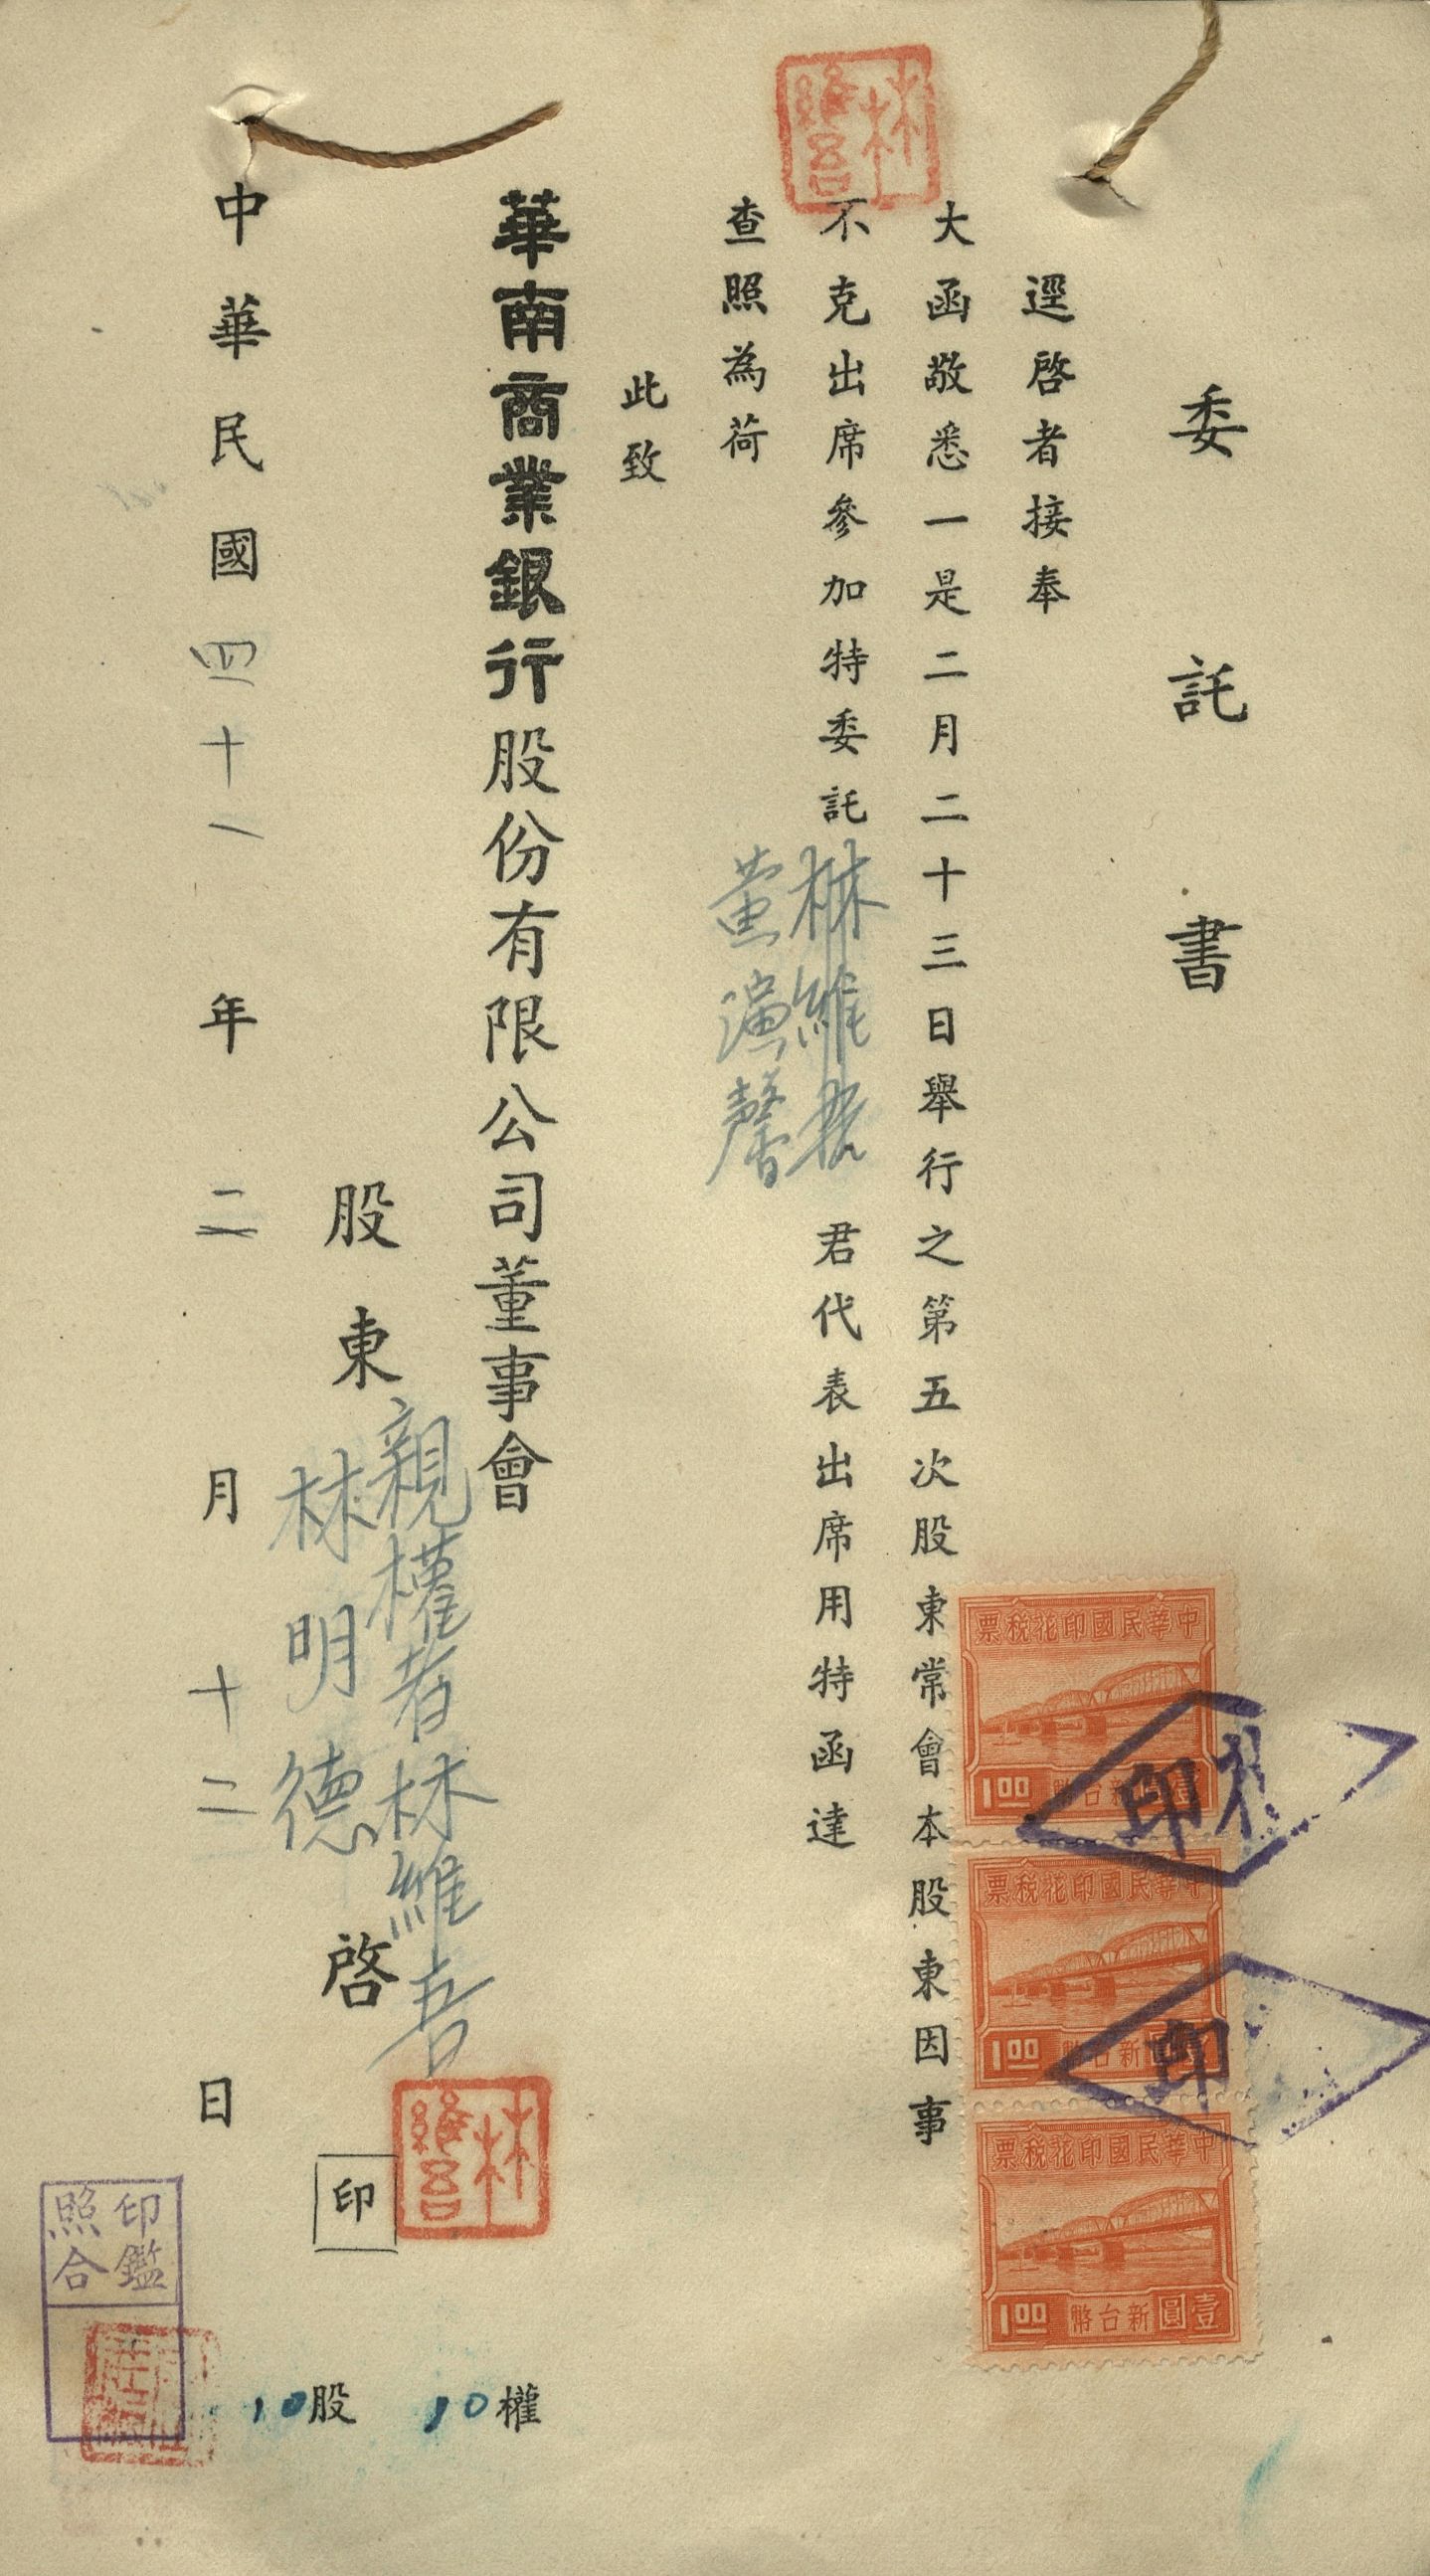 委託書
逕啓者接奉
大函敬悉一是二月二十三日舉行之第五次股東常會本股東因事
不克出席參加特委託林維君代表出席用特函達
黃演馨
查照為荷
此致
華南商業銀行股份有限公司董事會
親權者林維吾
股東林明德啓
印
中華民國四十一年二月十二日
10股 10權
林維吾
林維吾
印鑑照合
中華民國印花稅票
1.00 新台幣
印
中華民國印花稅票
1.00 新台幣
印
中華民國印花稅票
1.00 新台幣壹圓